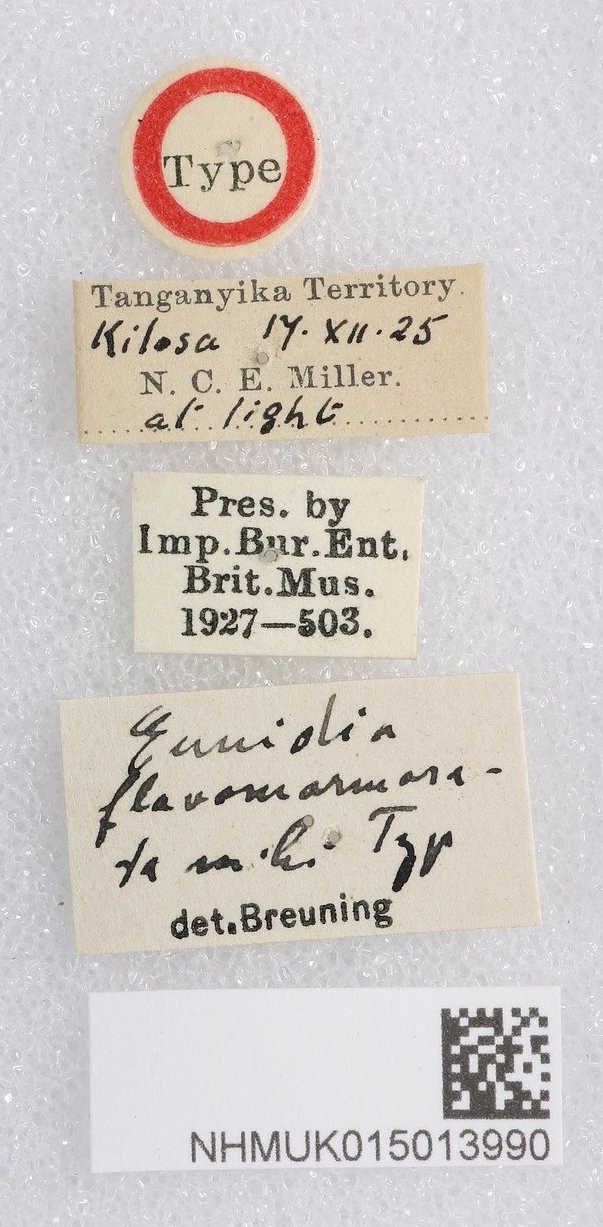 Type
Tanganyika Territory.
Kilosa 17.XII.25
N. C. E. Miller.
at light
Pres. by
Imp.Bur.Ent.
Brit.Mus.
1927—503.
Eunidia
flavomarmora-
ta mihi Typ
det.Breuning
NHMUK015013990